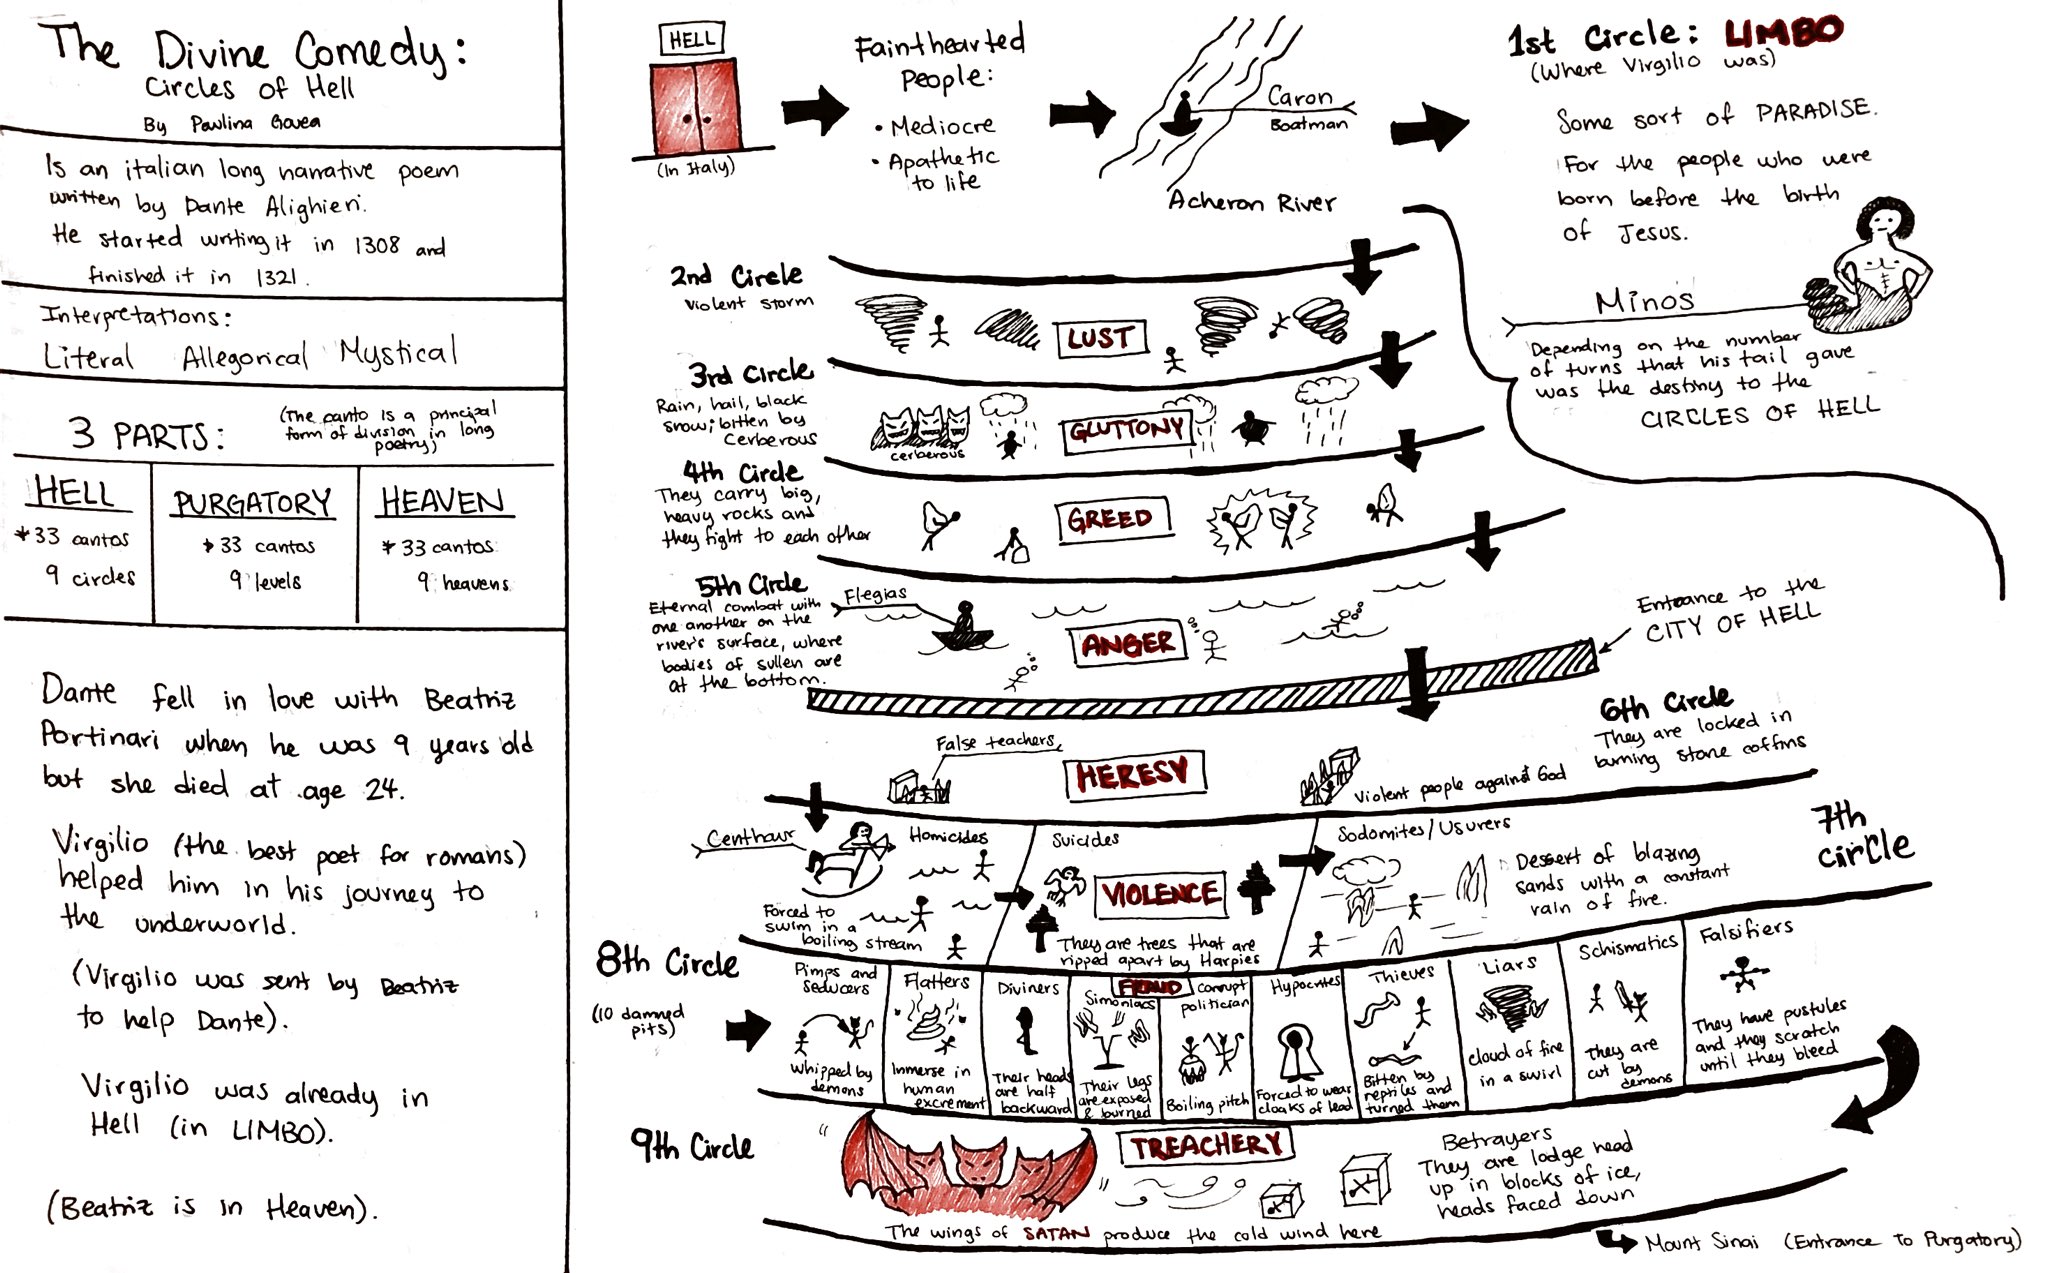 The Divine Comedy:
Circles of Hell
By Paulina Govea
Is an italian long narrative poem
written by Dante Alighieri.
He started writing it in 1308 and
finished it in 1321.
Interpretations:
Literal Allegorical Mystical
3 PARTS:
(The canto is a principal
form of division in long
poetry)
HELL
*33 cantos
9 circles
PURGATORY
*33 cantos
9 levels
HEAVEN
*33 cantos
9 heavens
Dante fell in love with Beatriz
Portinari when he was 9 years old
but she died at age 24.
Virgilio (the best poet for romans)
helped him in his journey to
the underworld.
(Virgilio was sent by Beatriz
to help Dante).
Virgilio was already in
Hell (in LIMBO).
(Beatriz is in Heaven).
HELL
(In Italy)
Fainthearted
People:
• Mediocre
• Apathetic
to life
Caron
Boatman
Acheron River
1st Circle: LIMBO
(Where Virgilio was)
Some sort of PARADISE.
For the people who were
born before the birth
of Jesus.
Minos
Depending on the number
of turns that his tail gave
was the destiny to the
CIRCLES OF HELL
2nd Circle
Violent storm
LUST
3rd Circle
Rain, hail, black
snow; bitten by
Cerberous
cerberous
GLUTTONY
4th Circle
They carry big,
heavy rocks and
they fight to each other
GREED
5th Circle
Eternal combat with
one another on the
river's surface, where
bodies of sullen are
at the bottom.
Flegias
ANGER
Entrance to the
CITY OF HELL
6th Circle
They are locked in
burning stone coffins
False teachers
HERESY
Violent people against God
7th
circle
Centhaur
Homicides
Forced to
swim in a
boiling stream
Suicides
VIOLENCE
They are trees that are
ripped apart by Harpies
Sodomites/Usurers
Dessert of blazing
sands with a constant
rain of fire.
8th Circle
(10 damned
pits)
FRAUD
Pimps and
seducers
Whipped by
demons
Flatters
Inmerse in
human
excrement
Diviners
Their heads
are half
backward
Simoniacs
Their legs
are exposed
& burned
corrupt
politician
Boiling pitch
Hypocrites
Forced to wear
cloaks of lead
Thieves
Bitten by
reptiles and
turned them
Liars
cloud of fire
in a swirl
Schismatics
They are
cut by
demons
Falsifiers
They have pustules
and they scratch
until they bleed
9th Circle
TREACHERY
Betrayers
They are lodge head
up in blocks of ice,
heads faced down
The wings of SATAN produce the cold wind here
Mount Sinai (Entrance to Purgatory)